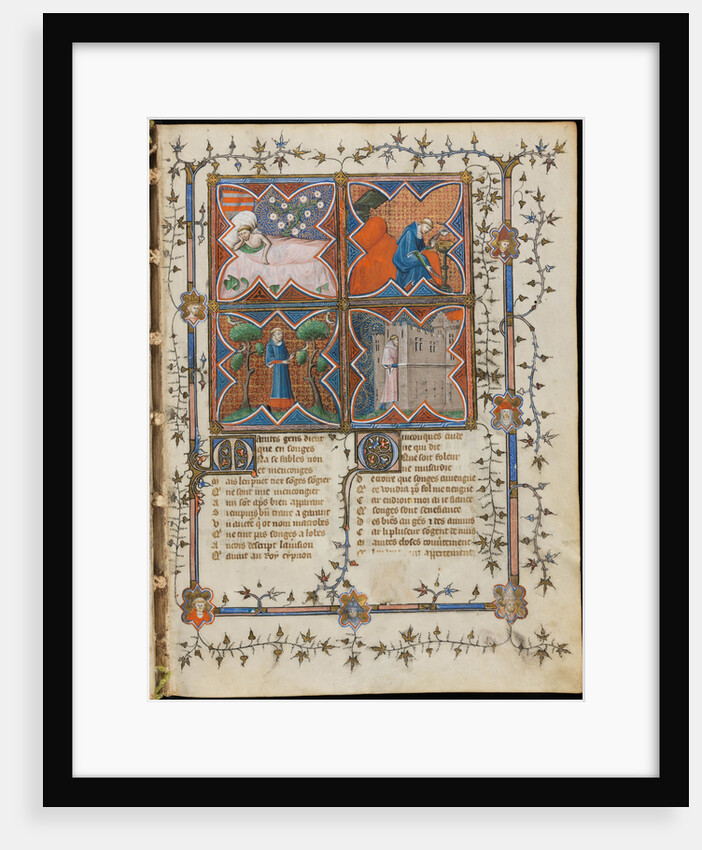 Maintes gens dient
que en songes
Na se fables non
et menconges
Mais len puet tiex sõges sõgier
Q̃ ne sont mie mencongier
Ains sõt apꝭ bien apparant
Si en puis bñ traire a garant
q̃ ot nom macrobes
Q̃ ne tint pas songes a lobes
Ancois descript lauision
Q̃ auint au Roy cyprion
Quiconques cuide
ne qui die
Que soit foleur
ne musardie
De croire que songes auiengne
fol me tiengne
Car endroit moi ai ie fiance
Q̃ songes sont senefiance
Des biẽs au gẽs ⁊ des anuis
Car li pluseur sõgent de nuis
Maintes choses couuertement
appertement